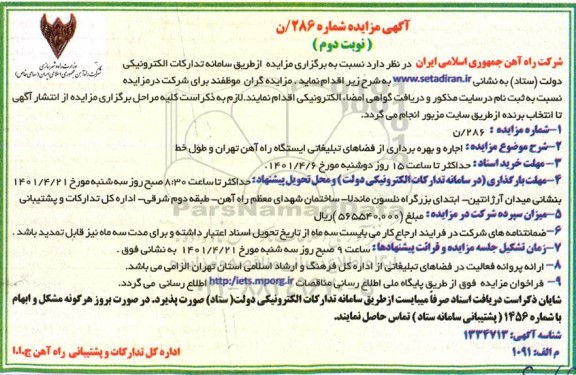 آگهی مزایده شماره ۲۸۶/ن
(نوبت دوم)
شرکت راه آهن جمهوری اسلامی ایران در نظر دارد نسبت به برگزاری مزایده ازطریق سامانه تدارکات الکترونیکی
دولت (ستاد) به نشانی www.setadiran.ir به شرح زیر اقدام نماید . مزایده گران موظفند برای شرکت درمزایده
نسبت به ثبت نام درسایت مذکور و دریافت گواهی امضاء الکترونیکی اقدام نمایند.لازم به ذکراست کلیه مراحل برگزاری مزایده از انتشار آگهی
تا انتخاب برنده ازطریق سایت مزبور انجام می گردد.
۱-شماره مزایده : ۲۸۶/ن
۲-شرح موضوع مزایده: اجاره و بهره برداری از فضاهای تبلیغاتی ایستگاه راه آهن تهران و طول خط
۳-مهلت خرید اسناد: حداکثر تا ساعت ۱۵ روز دوشنبه مورخ ۱۴۰۱/۴/۶.
۴-مهلت بارگذاری (در سامانه تدارکات الکترونیکی دولت) و محل تحویل پیشنهاد: حداکثر تا ساعت ۸:۳۰ صبح روز سه شنبه مورخ ۱۴۰۱/۴/۲۱
بنشانی میدان آرژانتین- ابتدای بزرگراه نلسون ماندلا- ساختمان شهدای معظم راه آهن- طبقه دوم شرقی- اداره کل تدارکات و پشتیبانی
۵-میزان سپرده شرکت در مزایده: مبلغ (۵۶۵۵۴۰,۰۰۰) ریال
۶- ضمانتنامه های شرکت در فرایند ارجاع کار می بایست سه ماه از تاریخ تحویل اسناد اعتبار داشته و برای مدت سه ماه نیز قابل تمدید باشد .
۷-زمان تشکیل جلسه مزایده و قرائت پیشنهادها: ساعت ۹ صبح روز سه شنبه مورخ ۱۴۰۱/۴/۲۱ به نشانی فوق .
۸- ارائه پروانه فعالیت در فضاهای تبلیغاتی از اداره کل فرهنگ و ارشاد اسلامی استان تهران الزامی می باشد.
۹- فراخوان مزایده فوق از طریق پایگاه ملی اطلاع رسانی مناقصات http:/iets.mporg.ir اطلاع رسانی می گردد.
شایان ذکراست دریافت اسناد صرفاً میبایست ازطریق سامانه تدارکات الکترونیکی دولت(ستاد) صورت پذیرد. در صورت بروز هرگونه مشکل و ابهام
با شماره ۱۴۵۶ (پشتیبانی سامانه ستاد) تماس حاصل نمایند.
شناسه آگهی: ۱۳۳۴۷۱۳
م الف: ۱۰۹۱
اداره کل تدارکات و پشتیبانی راه آهن ج.ا.ا